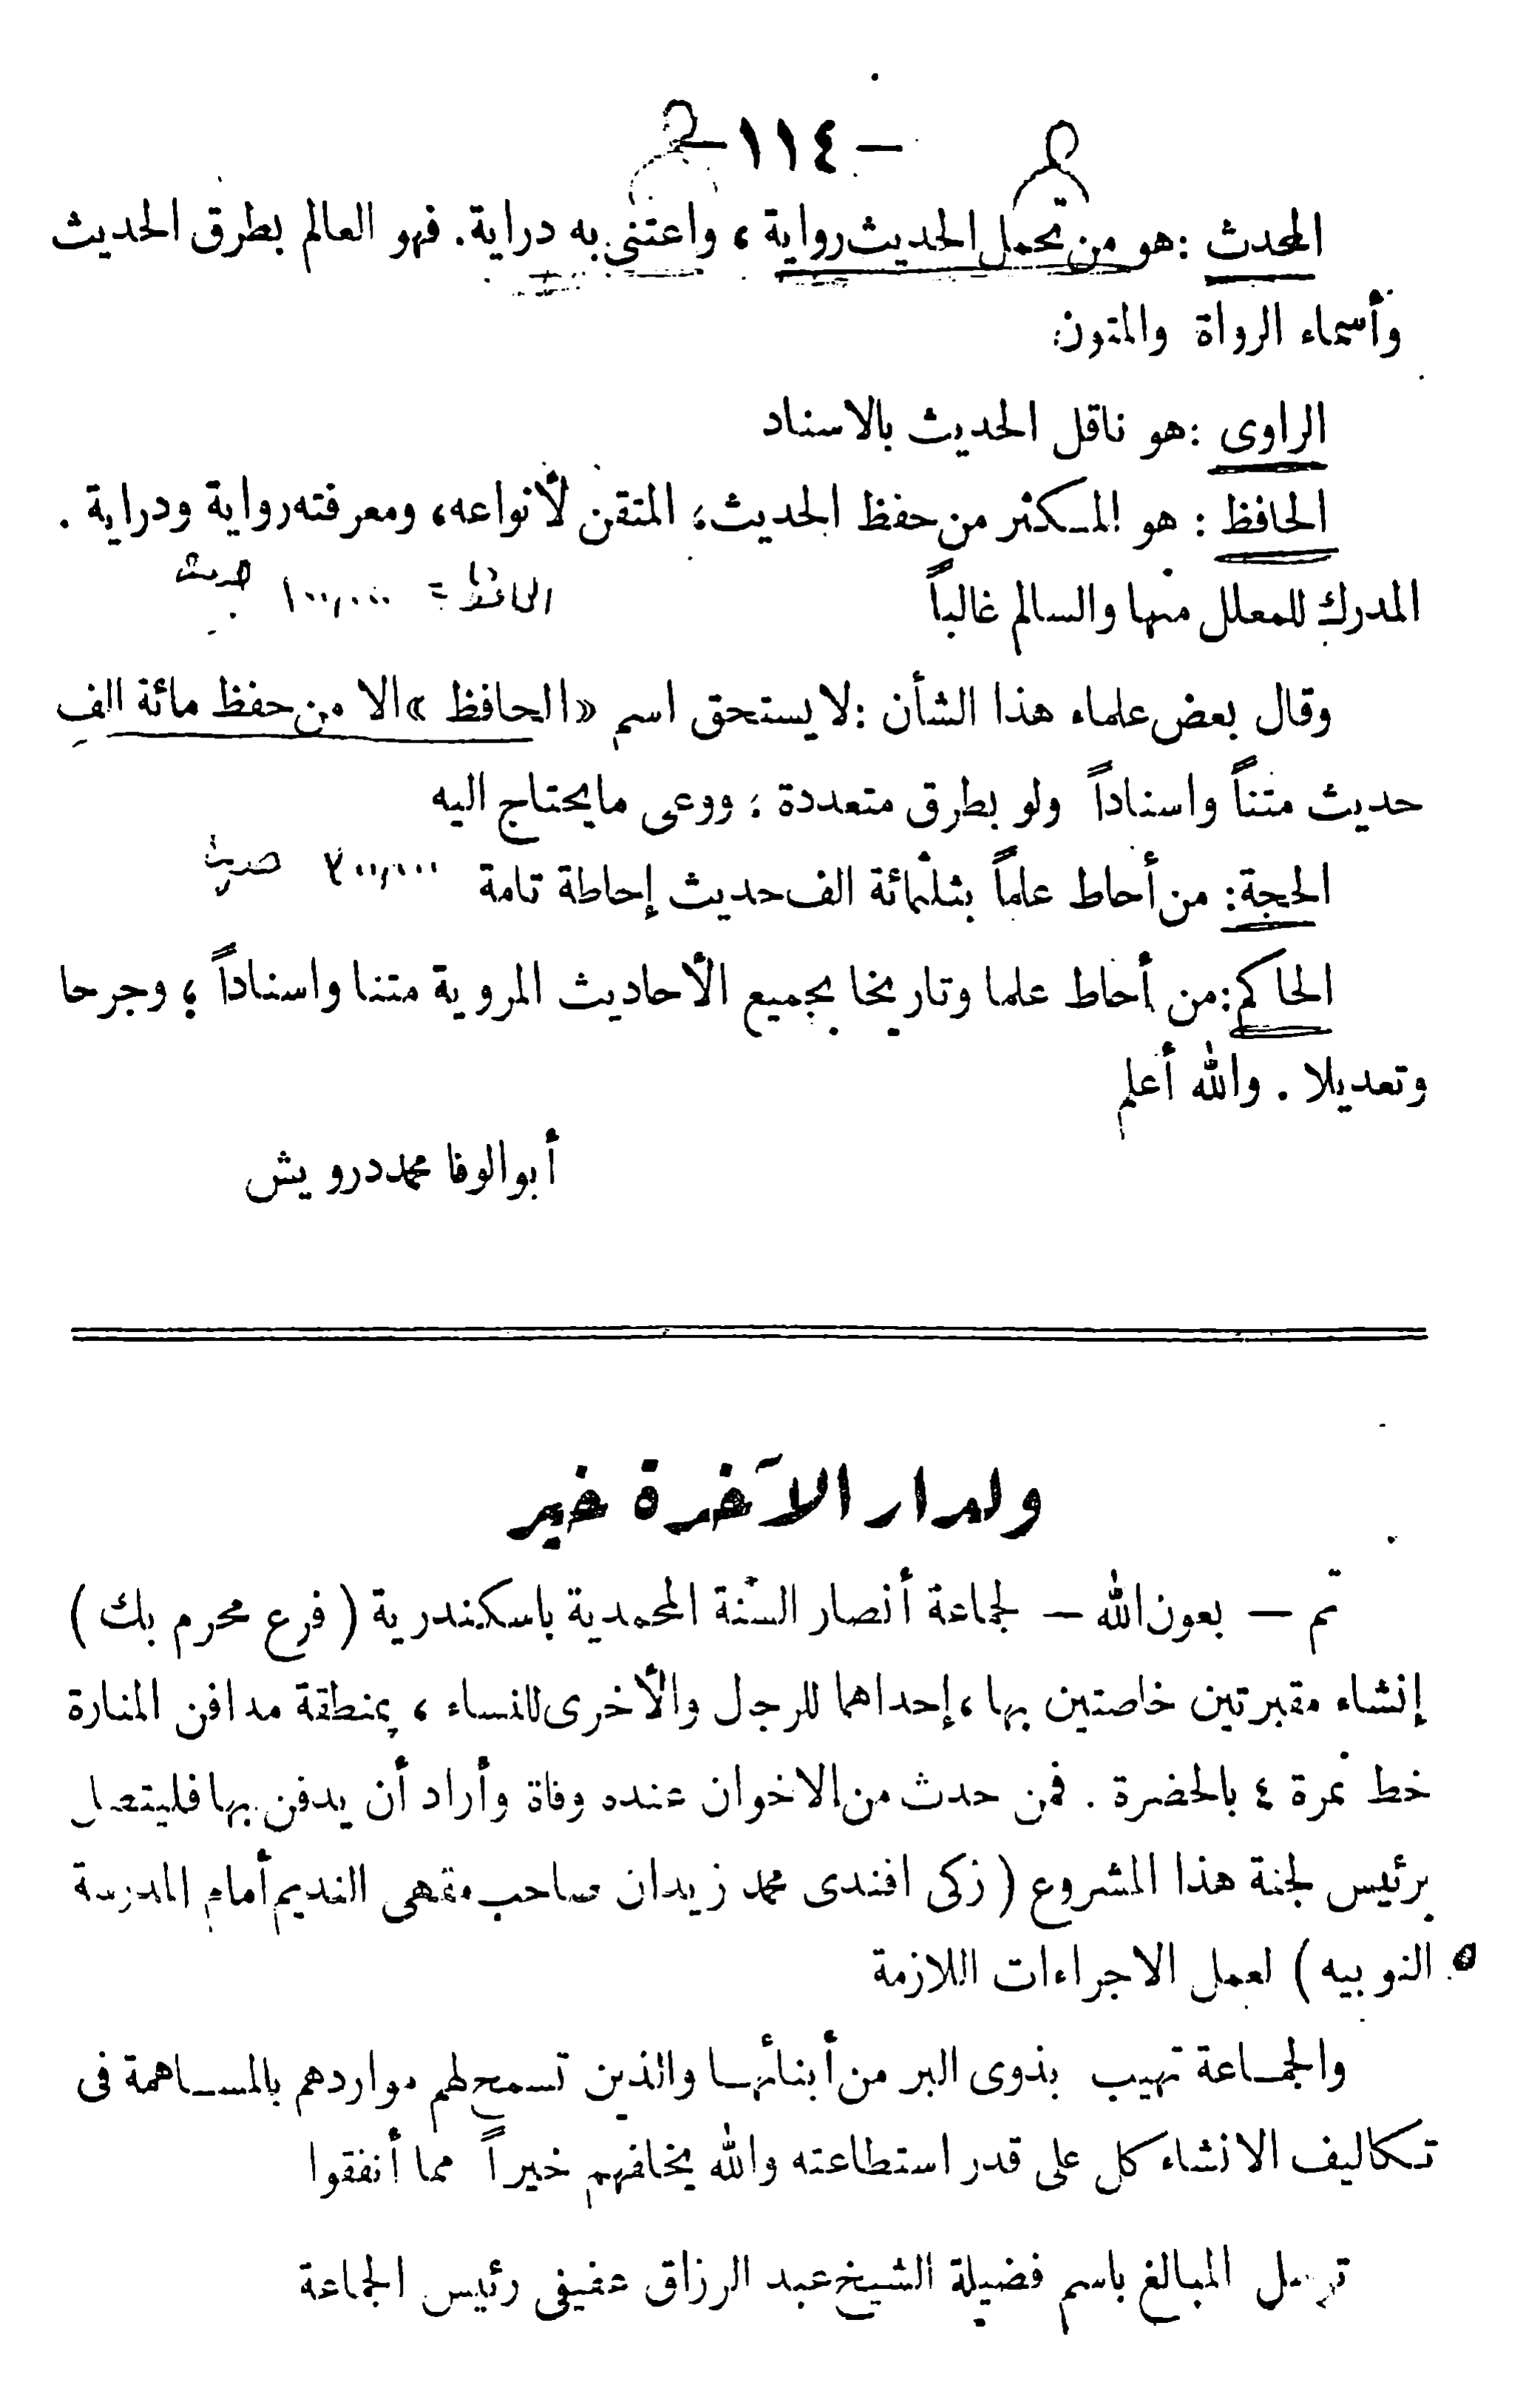 — ١١٤ —
المحدث : هو من تحمل الحديث رواية ، واعتنى به دراية . فهو العالم بطرق الحديث
وأسماء الرواة والمتون
الراوى : هو ناقل الحديث بالاسناد
الحافظ : هو المكثر من حفظ الحديث ، المتقن لأنواعه ، ومعرفته رواية ودراية .
المدرك للمعلل منها والسالم غالباً
الحافظ = ١٠٠,٠٠٠ حديث
وقال بعض علماء هذا الشأن : لا يستحق اسم «الحافظ» الا من حفظ مائة الف
حديث متناً واسناداً ولو بطرق متعددة ؛ ووعى مايحتاج اليه
الحجة : من أحاط علماً بثلثمائة الف حديث إحاطة تامة ٣٠٠,٠٠٠ حديث
الحاكم : من أحاط علما وتاريخا بجميع الأحاديث المروية متنا واسناداً ؛ وجرحا
وتعديلا . والله أعلم
أبو الوفا محمد درويش
ولدار الآخرة خير
تم — بعون الله — لجماعة أنصار السنة المحمدية باسكندرية ( فرع محرم بك )
إنشاء مقبرتين خاصتين بها ، إحداهما للرجل والأخرى للنساء ، بمنطقة مدافن المنارة
خط نمرة ٤ بالحضرة . فمن حدث من الاخوان عنده وفاة وأراد أن يدفن بها فليتصل
برئيس لجنة هذا المشروع ( زكى افندى محمد زيدان صاحب مقهى النديم أمام المدرسة
النوبيه ) لعمل الاجراءات اللازمة
والجماعة تهيب بذوى البر من أبنائها والذين تسمح لهم مواردهم بالمساهمة فى
تكاليف الانشاء كل على قدر استطاعته والله يخلفهم خيراً مما أنفقوا
ترسل المبالغ باسم فضيلة الشيخ عبد الرزاق عفيفى رئيس الجماعة